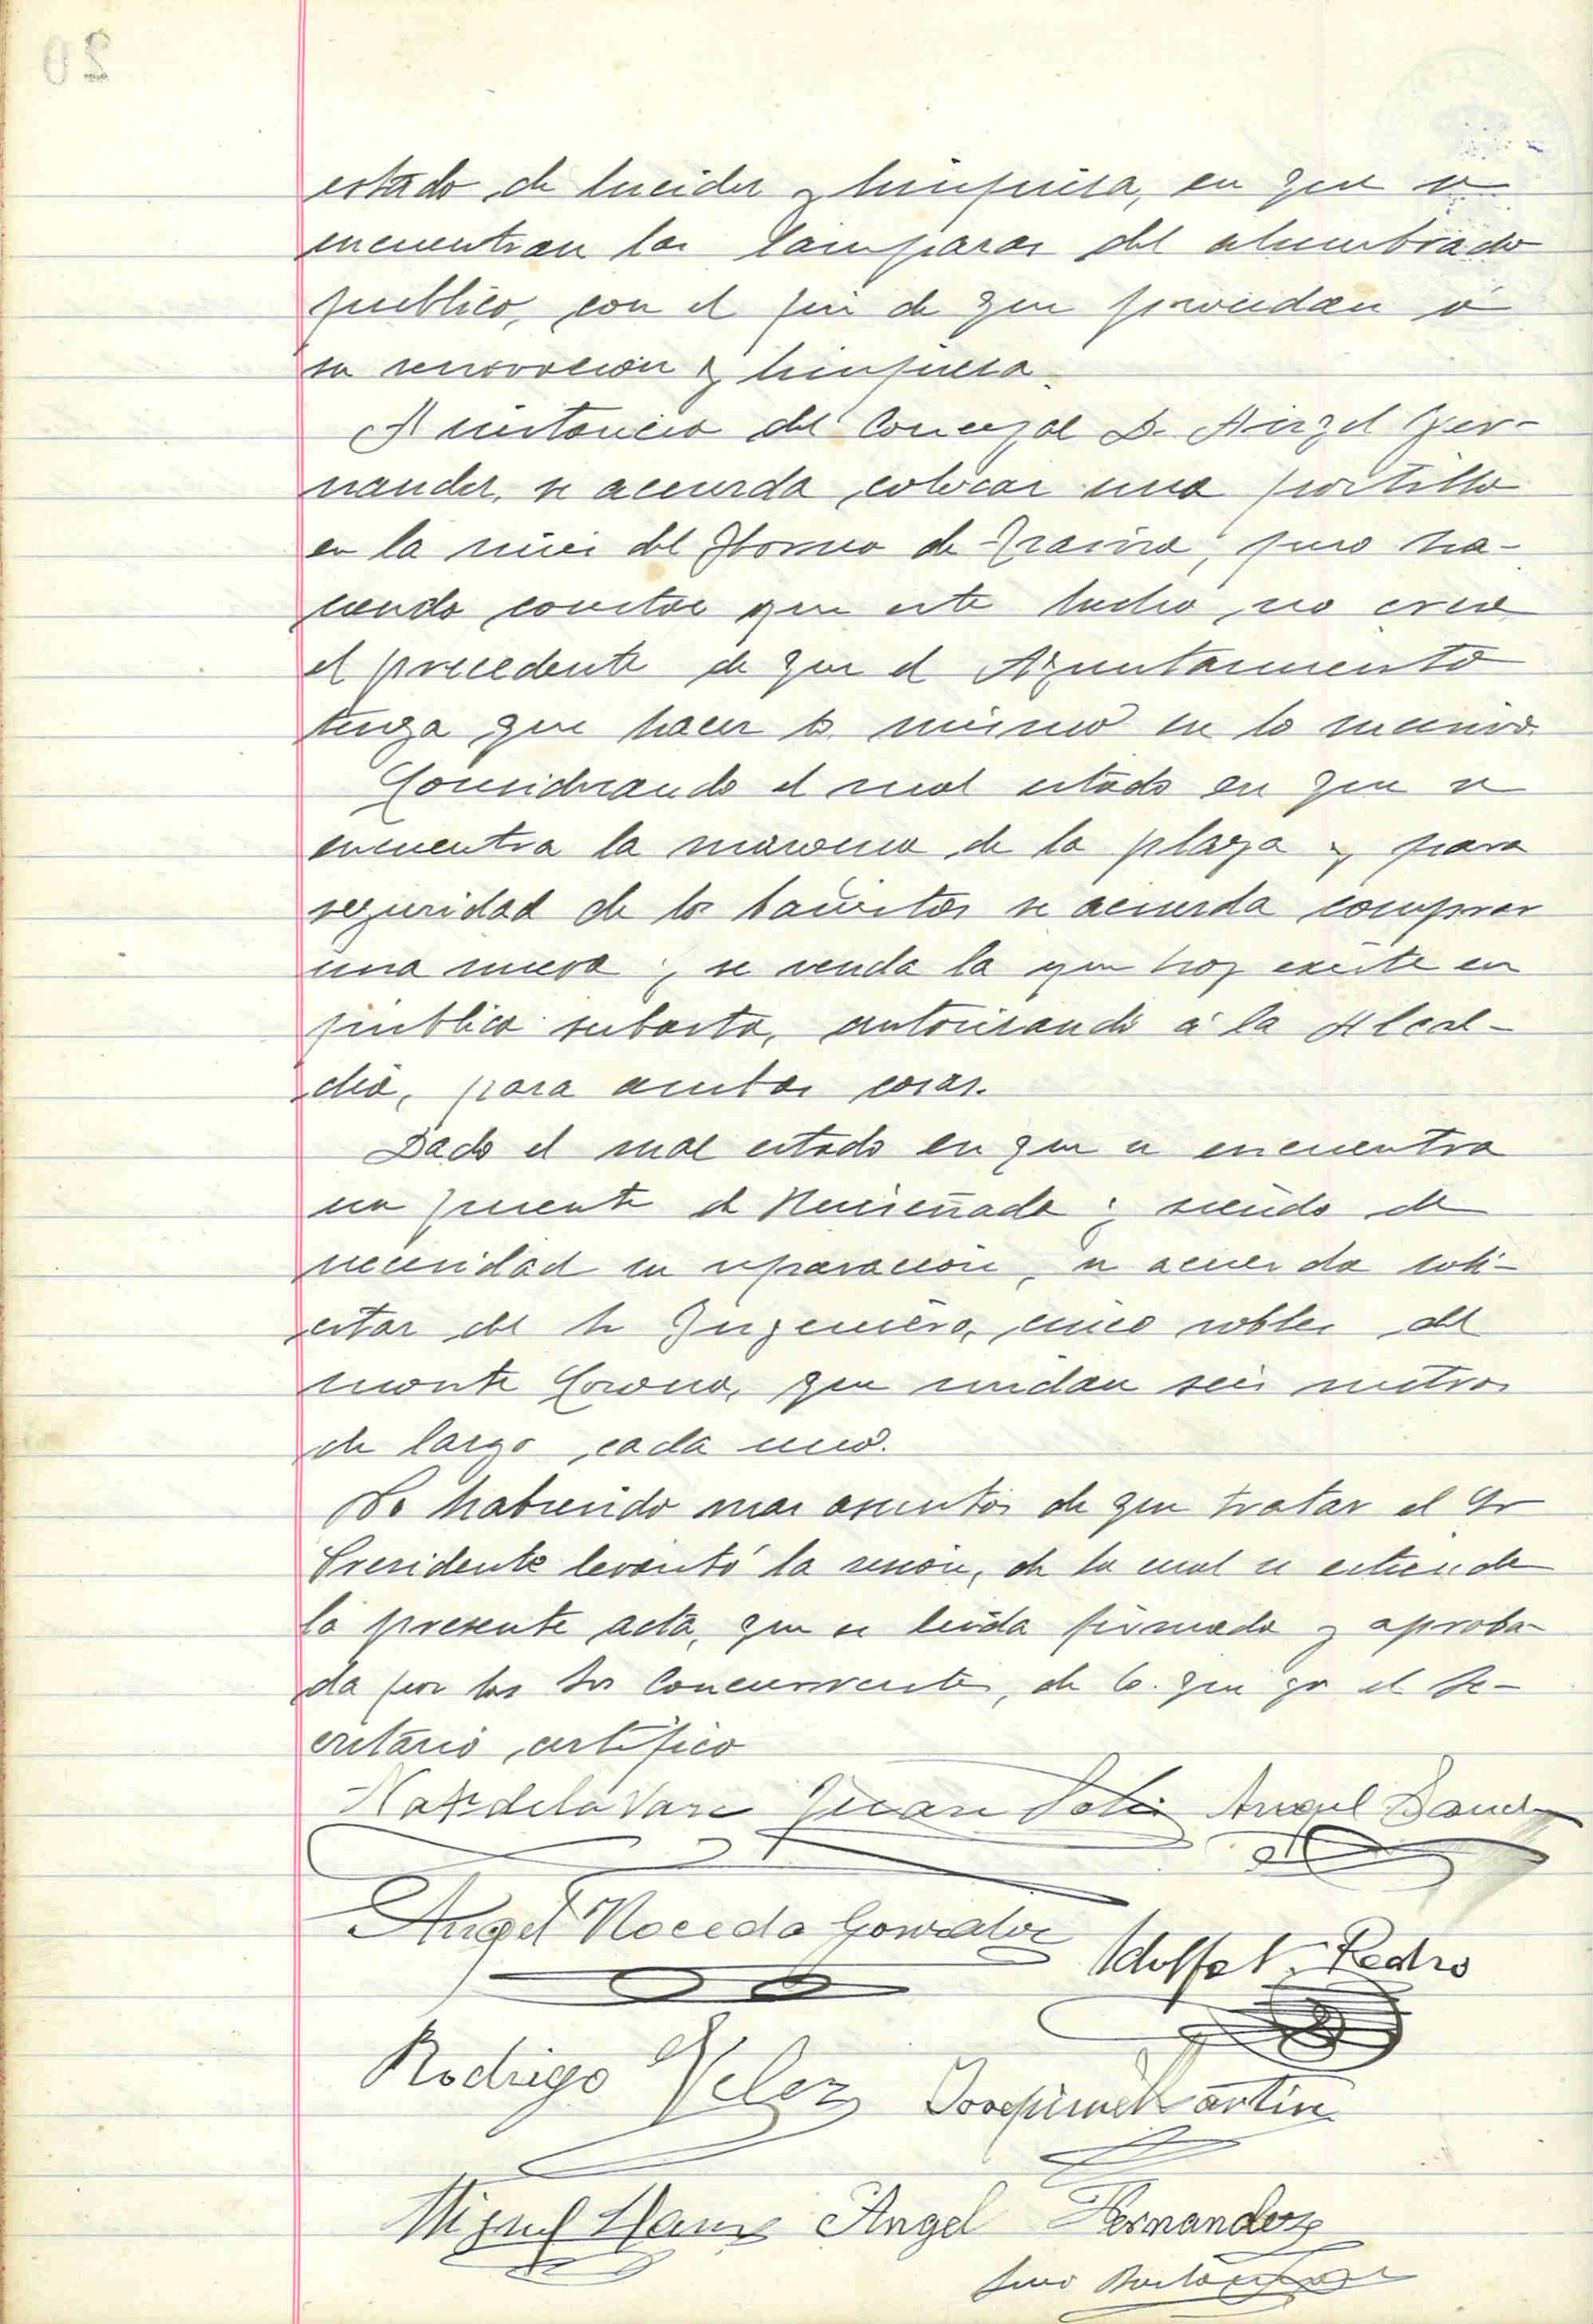 estado de lucidez y limpieza, en que se
encuentran las lamparas del alumbrado
publico, con el fin de que procedan á
su renovacion y limpieza.
A instancia del Concejal D. Angel Her-
nandez, se acuerda colocar una portilla
en la mies del de pero ha-
ciendo constar que este hecho no crea
el precedente de que el Ayuntamiento
tenga que hacer lo mismo en lo sucesivo.
Considerando el mal estado en que se
encuentra la maroma de la plaza y para
seguridad de los se acuerda comprar
una nueva y se venda la que hoy existe en
publica subasta, autorizando á la Alcal-
dia, para ambas cosas.
Dado el mal estado en que se encuentra
un puente de y siendo de
necesidad su reparacion, se acuerda soli-
citar del Sr Ingeniero, cinco robles del
monte Corona, que midan seis metros
de largo cada uno.
No habiendo mas asuntos de que tratar el Sr
Presidente levantó la sesion, de la cual se extiende
la presente acta, que es leida firmada y aproba-
da por los Srs Concurrentes, de lo que yo el Se-
cretario certifico
Juan Angel
Angel Noceda Gonzalez
Pedro
Rodrigo Velez Joaquin Martin
Miguel Angel Hernandez